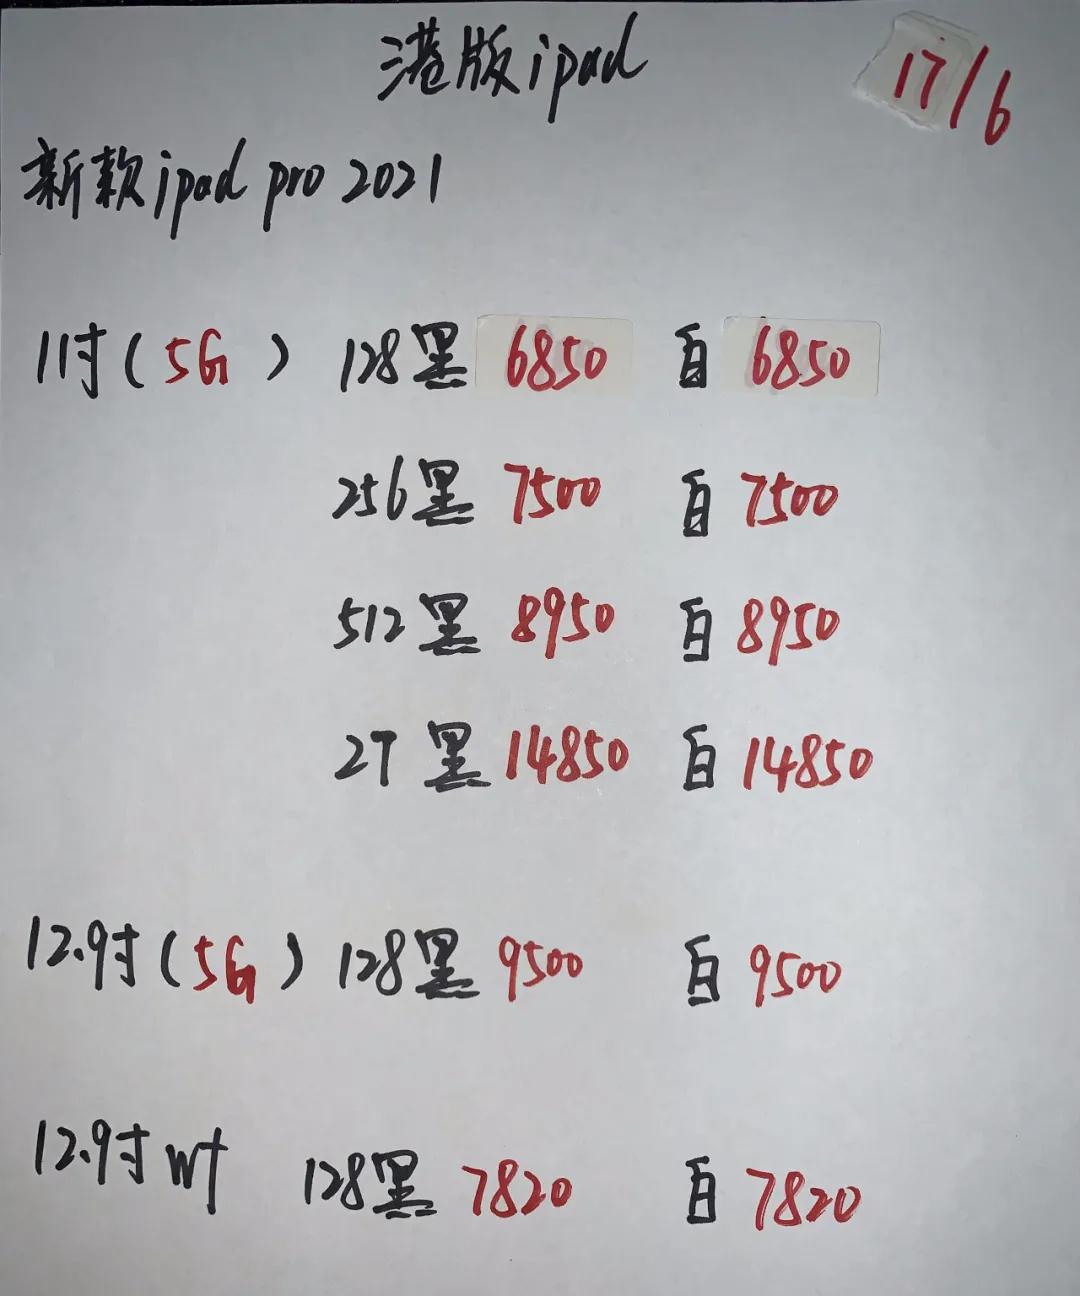 港版ipad
17/6
新款ipad pro 2021
11寸(5G) 128黑 6850 白 6850
256黑 7500 白 7500
512黑 8950 白 8950
2T 黑 14850 白 14850
12.9寸(5G) 128黑 9500 白 9500
12.9寸 wf 128黑 7820 白 7820